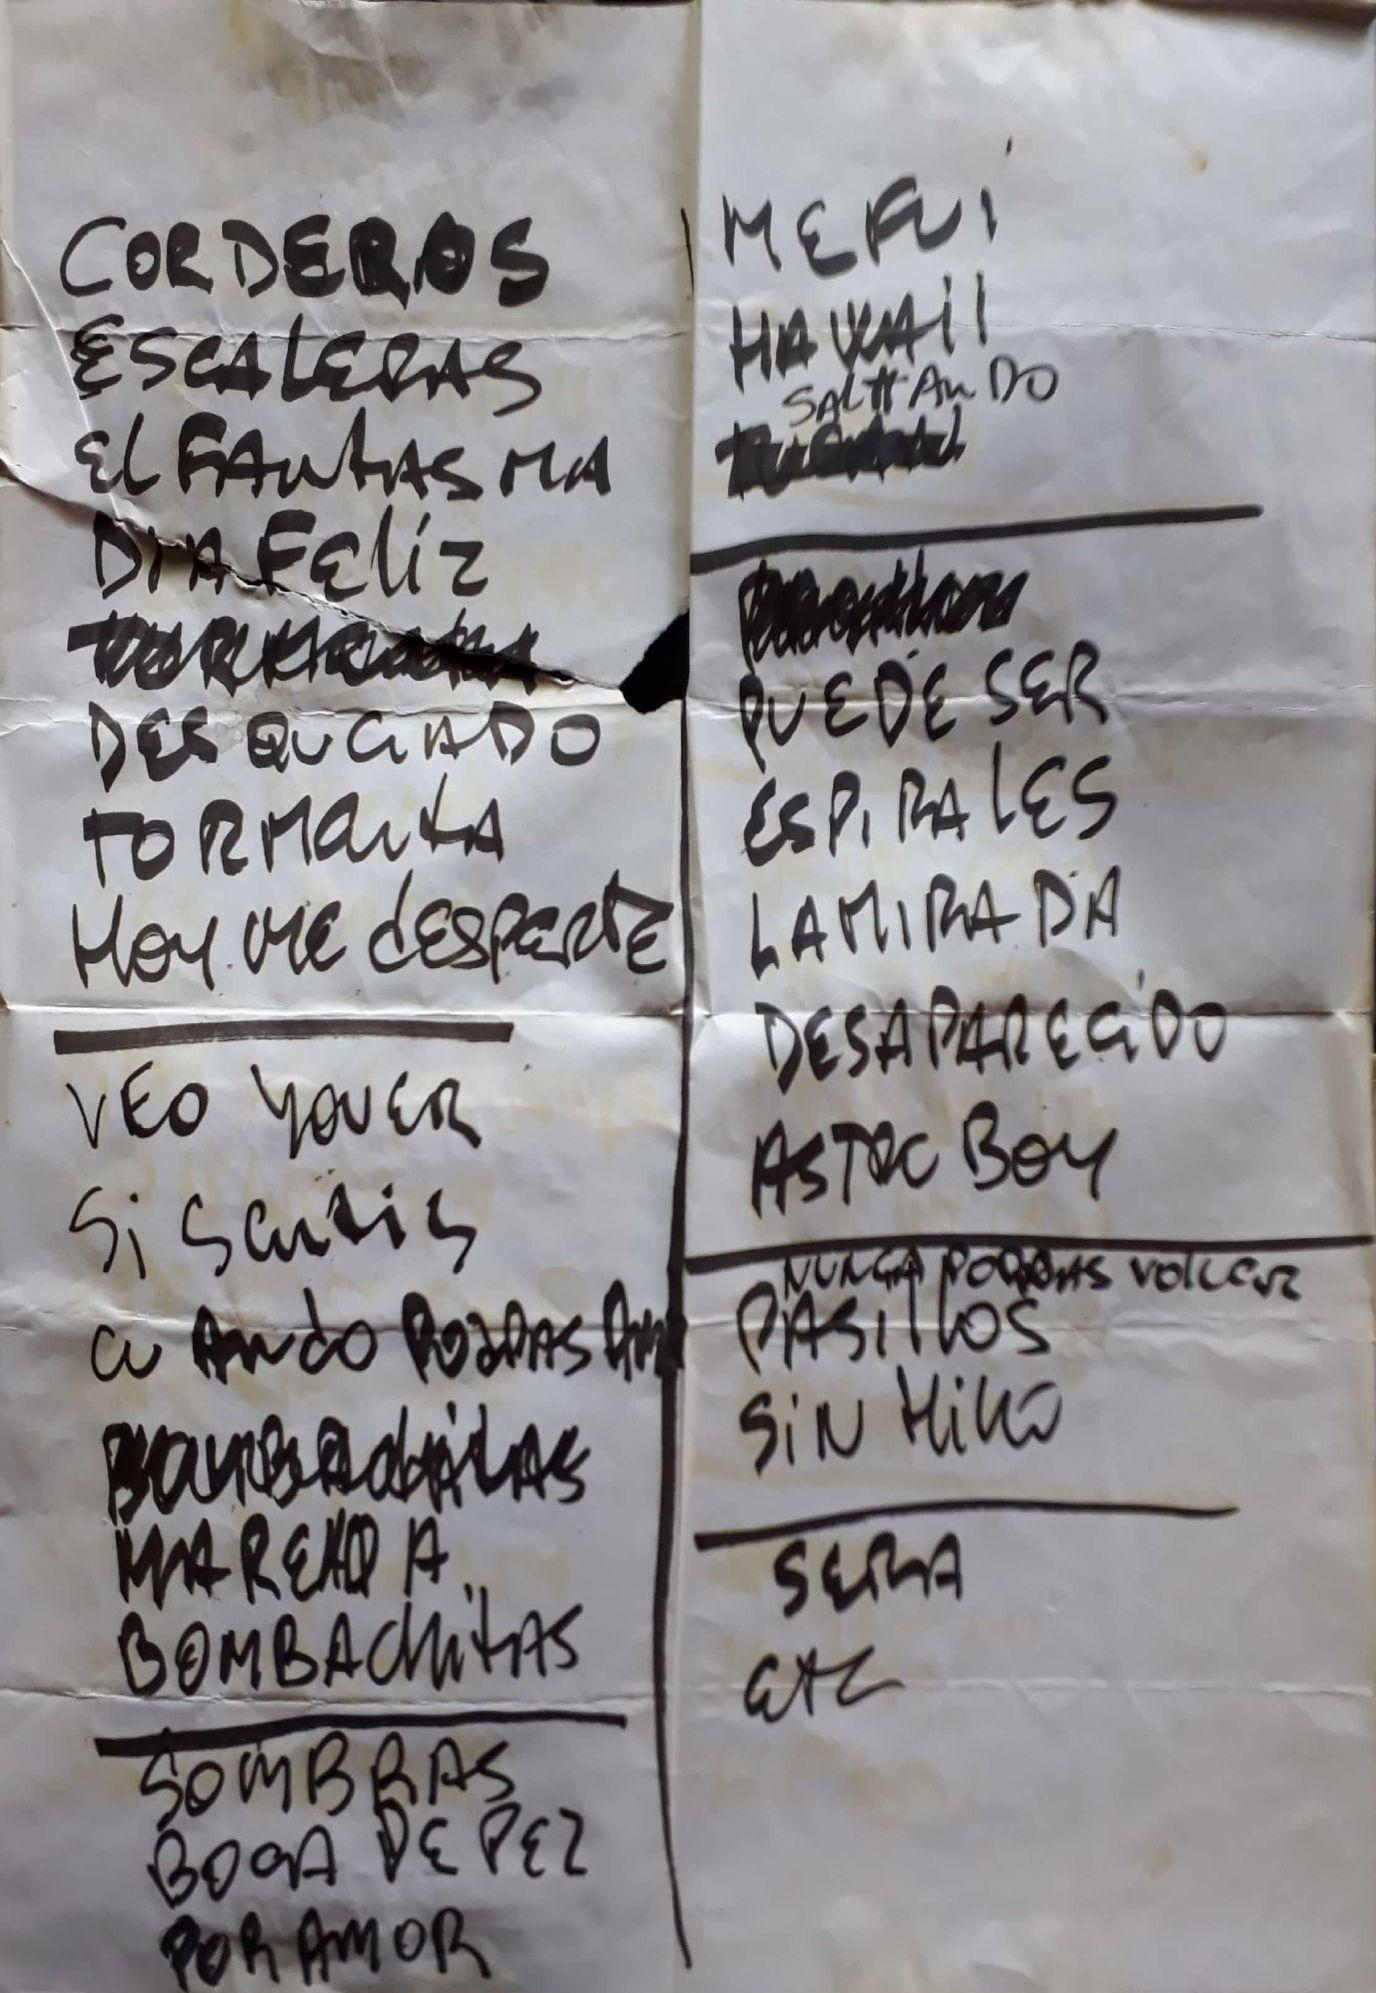 CORDEROS
ESCALERAS
EL FANTASMA
DIA FELIZ
DESQUCIADO
TORMENTA
HOY ME DESPERTE
VEO YOVER
Si SENTIS
CUANDO PODRAS AMA
BOMBACHITAS
MAREADA
BOMBACHITAS
SOMBRAS
BOCA DE PEZ
POR AMOR
ME FUI
HAWAII
SALTANDO
PUEDE SER
ESPIRALES
LA MIRADA
DESAPARECIDO
ASTRO BOY
NUNCA PODRAS VOLVER
PASILLOS
SIN HILO
SERA
ETC